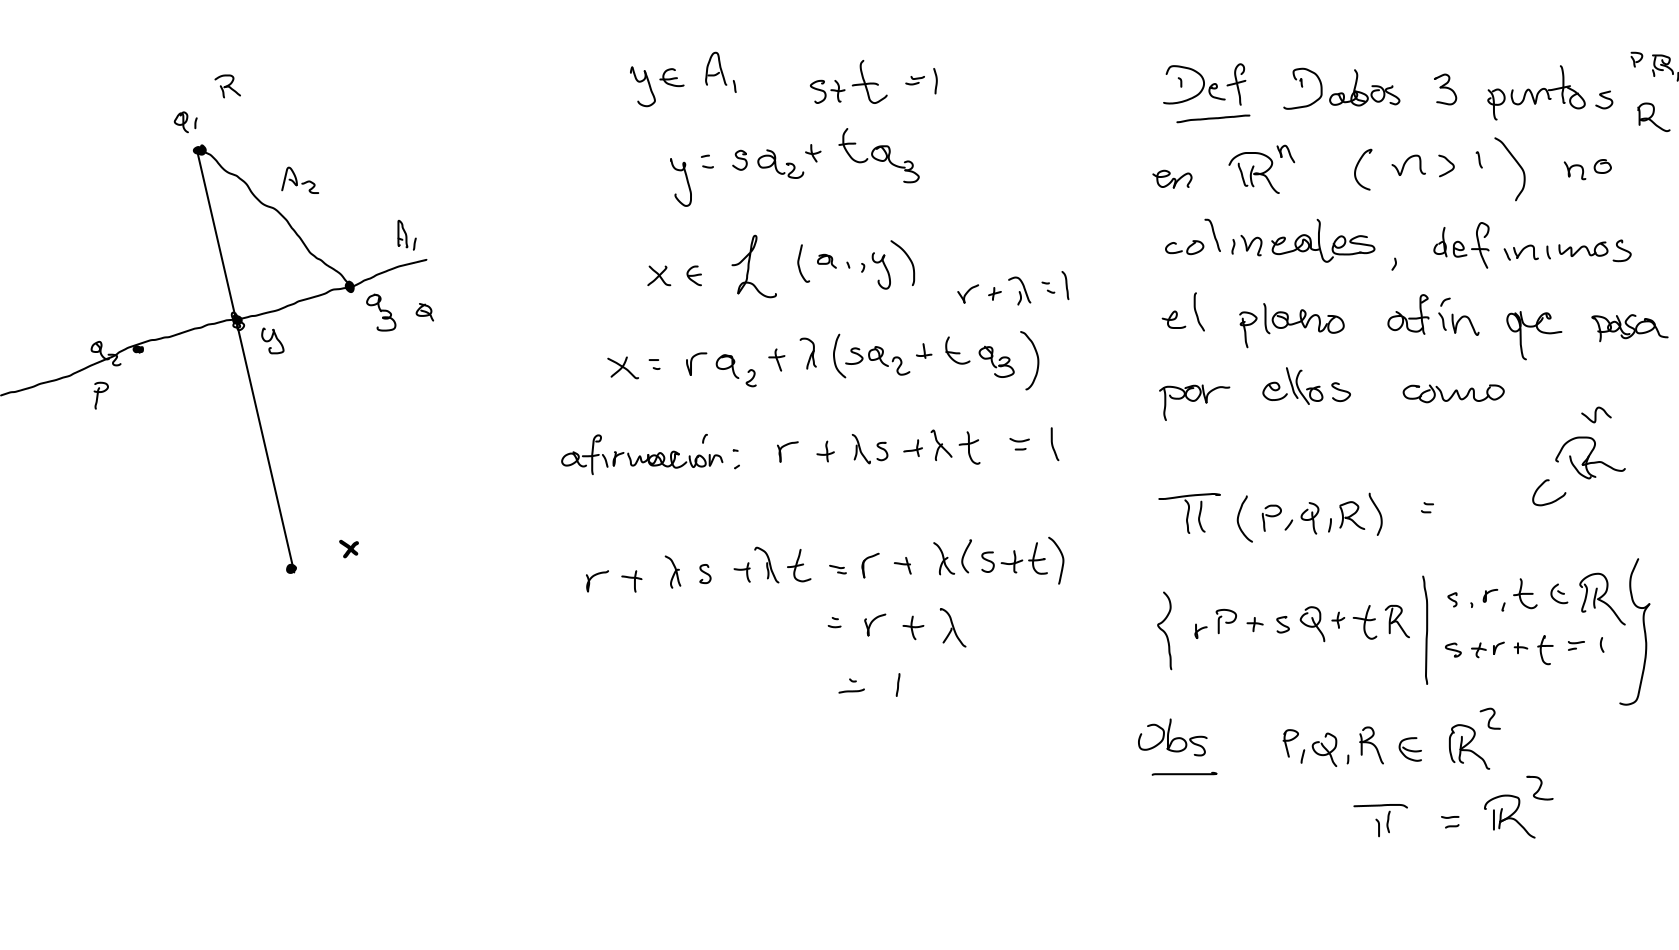 R
a₁
A₂
A₁
a₃ Q
y
a₂
P
x
y ∈ A₁ s+t=1
y = sa₂ + ta₃
x ∈ L (a₁, y)
r+λ=1
x = ra₂ + λ(sa₂ + ta₃)
afirmación: r + λs + λt = 1
r + λs + λt = r + λ(s+t)
= r + λ
= 1
Def Dados 3 puntos P,Q,
R
en ℝⁿ (n>1) no
colineales, definimos
el plano afín que pasa
por ellos como
Π(P,Q,R) = ⊂ℝⁿ
{ rP + sQ + tR | s,r,t ∈ ℝ
s+r+t=1 }
Obs P,Q,R ∈ ℝ²
Π = ℝ²